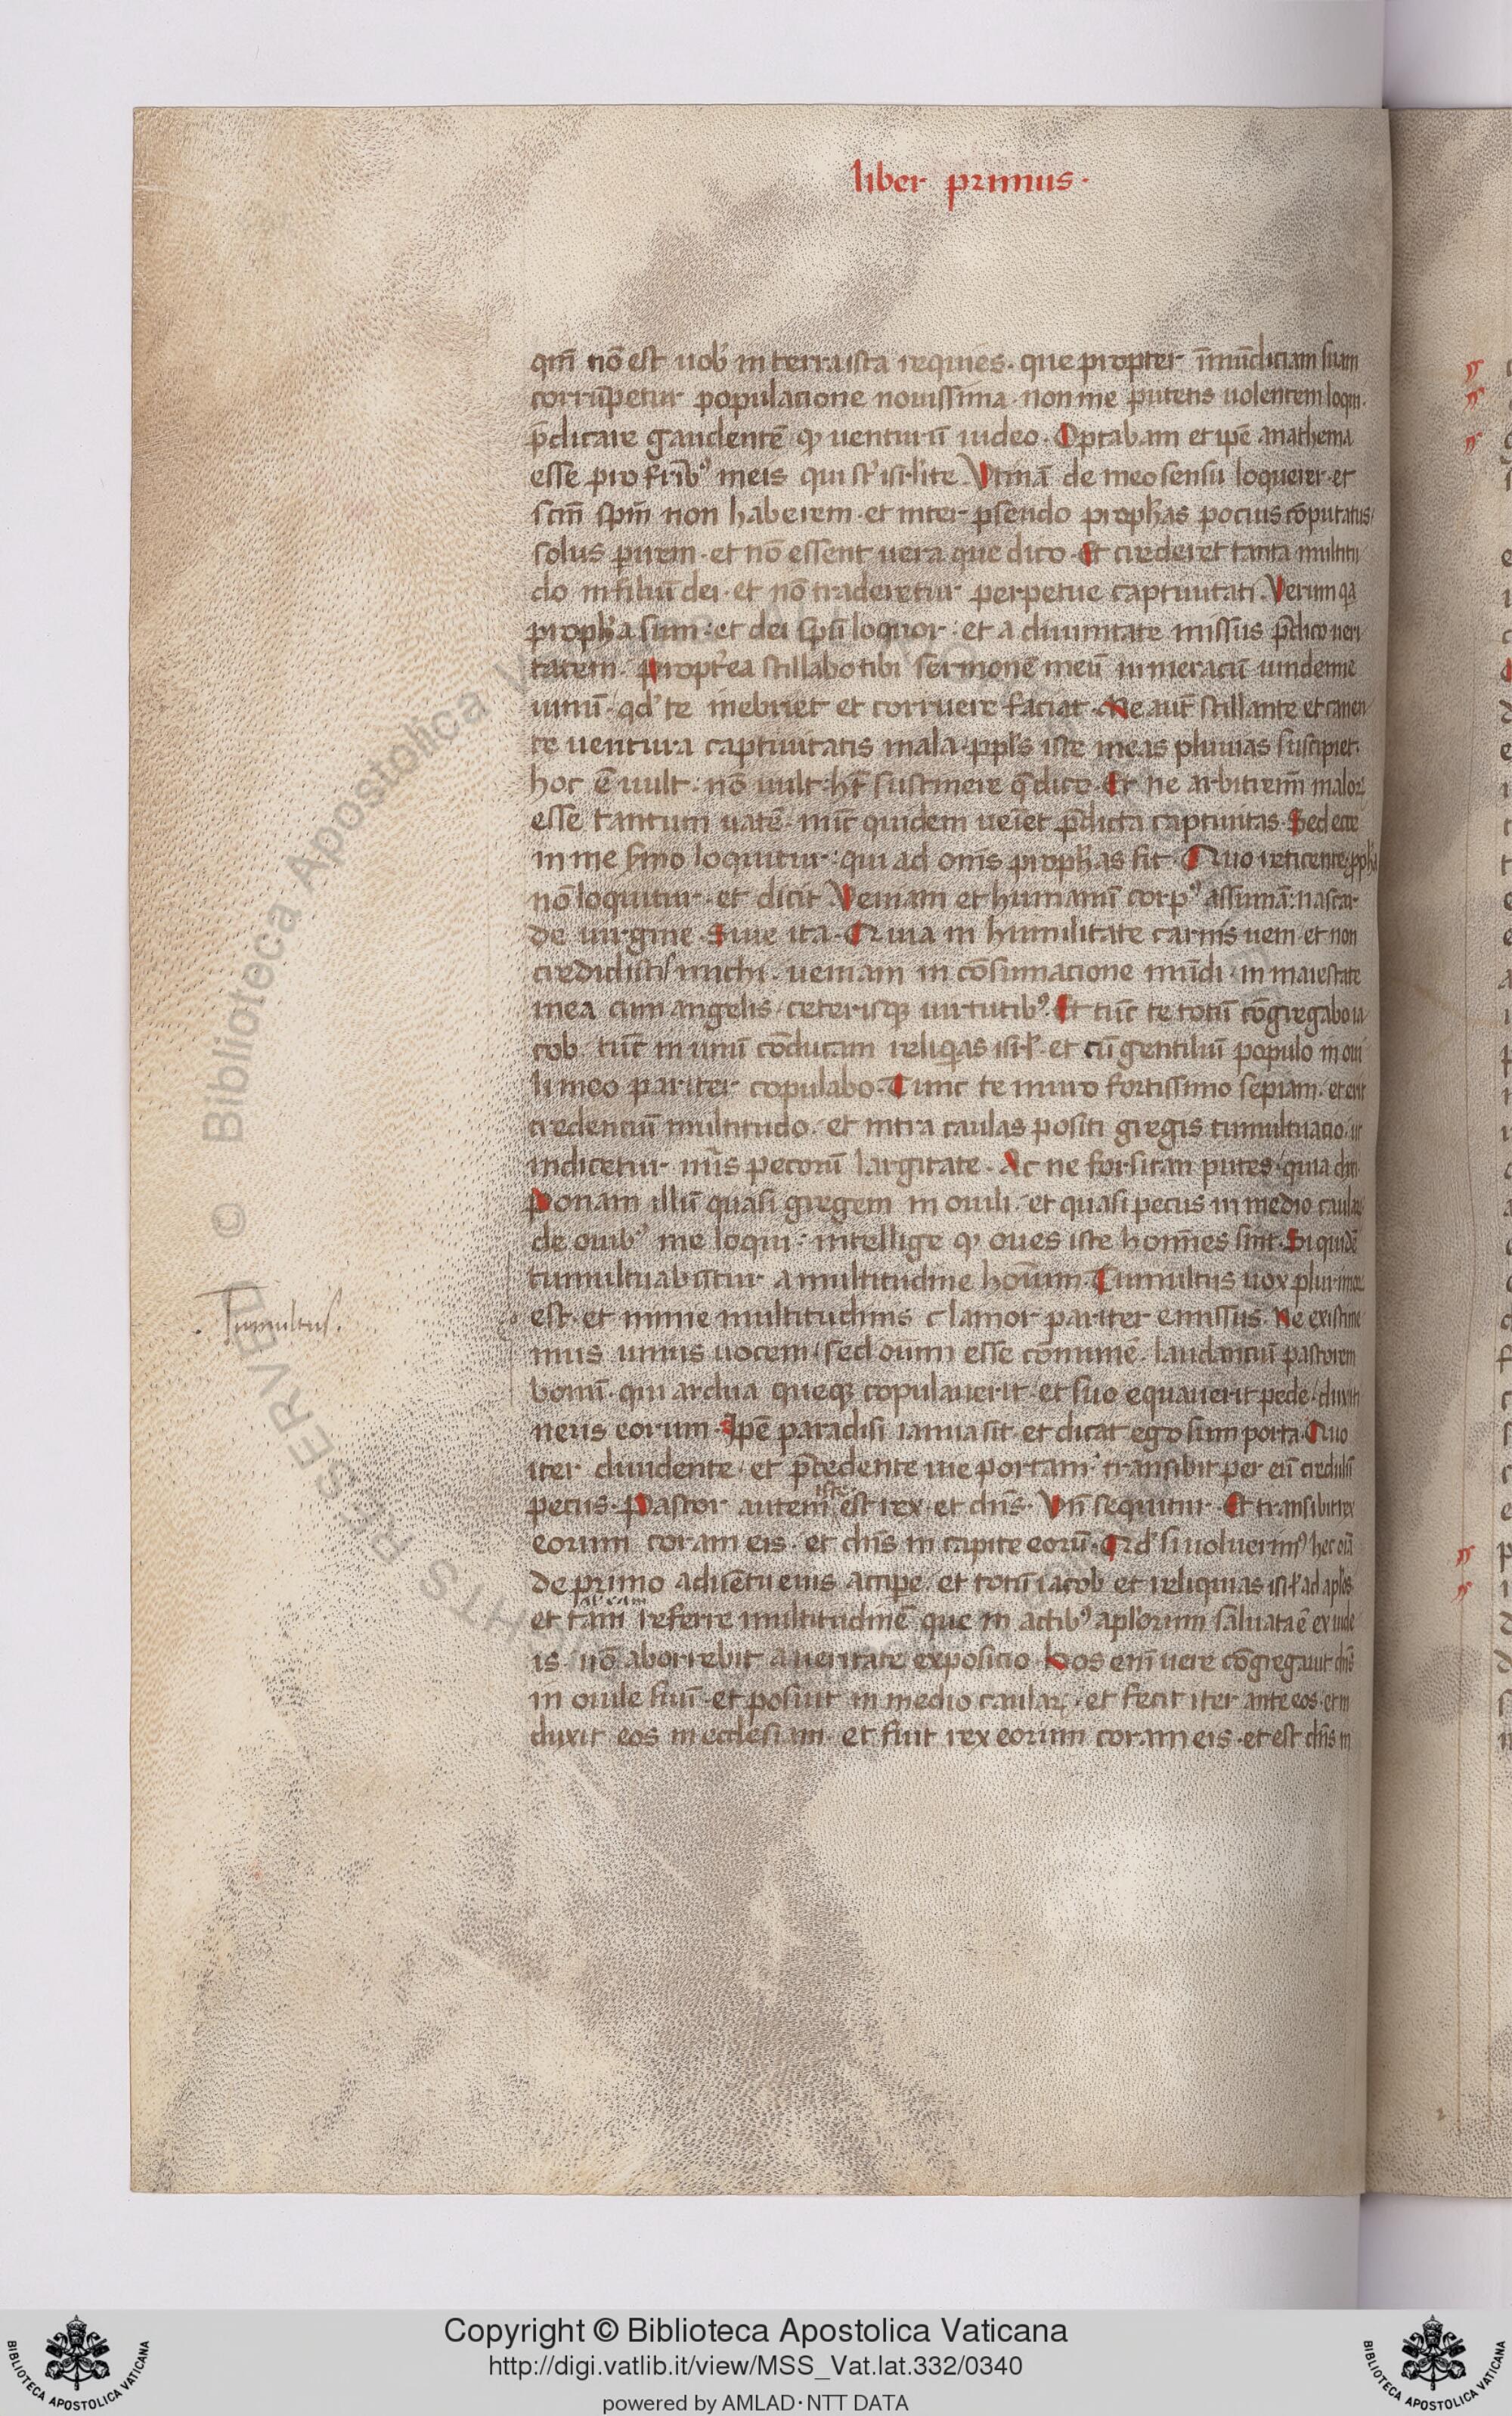 liber primus.
qm̄ nō est uob̄ in terra ista requies. que propter īmūdiciam suam
corrūpetur populatione nouissima. non me putetis uolentem loqui.
p̄dicare gaudentē qꝫ uenturū uideo. Optabam et ip̄e anathema
esse pro fr̄ib⁹ meis qui st̄ isr̄lite. Vtinā de meo sensu loquerer. et
sc̄m sp̄m non haberem. et inter pseudo proph̄as pocius cōputatus/
solus perirem. et nō essent uera que dico. Et crederet tanta multitu
do in filiū dei. et nō traderetur perpetue captiuitati. Verum qa
proph̄a sum: et dei sp̄u loquor. et a diuinitate missus p̄dico ueri
tatem. propt̄ea stillabo tibi sermonē meū in meracū uindemie
uinū. qd̄ te inebriet et corruere faciat. Me aut̄ stillante et canen
te uentura captiuitatis mala. ppl̄s iste meas pluuias suscipiet.
hoc ē uult. nō uult. h̄t sustinere q̄ dico. Et ne arbitrem̄ maloꝝ
esse tantum uatē. nūc quidem ueiet p̄dicta captiuitas. Sed ecce
in me sermo loquitur. qui ad om̄s proph̄as fit. Quo reticente proph̄a
nō loquitur. et dicit Veniam et humanū corp⁹ assumā: nascar
de uirgine. Siue ita. Quia in humilitate carnis ueni. et non
credidisti michi. ueniam in cōsumacione mūdi. in maiestate
mea cum angelis ceterisqꝫ uirtutib⁹. Et tūc te totū cōgregabo ia
cob. tūc in unū cōducam reliqias isr̄l. et cū gentiliū populo in oui
li meo pariter copulabo. Tunc te muro fortissimo sepiam. et erit
credentiū multitudo. et intra caulas positi gregis tumultuatio. ut
indicetur nīs pecorū largitate. Ac ne forsitan putes quia dixi.
Ponam illū quasi gregem in ouili. et quasi pecus in medio caulaꝝ
de ouib⁹ me loqui. intellige qꝫ oues iste homines sint. Si quidē
tumultuabūtur a multitudine hoīum. Tumultus uox plurimoꝝ
est. et nimie multitudinis clamor pariter emissus. Ne existime
mus unius uocem. sed oīum esse cōmunē. laudantiū pastorem
bonū. qui ardua queqꝫ copulauerit. et suo equauerit pede. duxit
neris eorum. Ip̄e paradisi ianua sit. et dicat ego sum porta. Quo
iter diuidente. et p̄cedente uie portam. transibit per eū credulū
iste
pecus. Pastor autem est rex. et dn̄s. Vn̄ sequitur. Et transibit rex
eorum coram eis. et dn̄s in capite eorū. Qd̄ si uoluerim⁹ hec oīa
de primo aduētu eius accipe. et totū iacob et reliquias isr̄l ad apl̄os
et tam referre multitudinē que in actib⁹ apl̄orum saluata ē ex iude
is. nō aborrebit a ueritate expositio. Hos enī uere cōgregauit dn̄s
in ouile suū. et posuit in medio caulaꝝ. et fecit iter ante eos. et in
duxit eos in ecclesiam. et fuit rex eorum coram eis. et est dn̄s in
Tumultus.
© Biblioteca Apostolica Vaticana
RIGHTS RESERVED
Copyright © Biblioteca Apostolica Vaticana
http://digi.vatlib.it/view/MSS_Vat.lat.332/0340
powered by AMLAD·NTT DATA
BIBLIOTECA APOSTOLICA VATICANA
BIBLIOTECA APOSTOLICA VATICANA